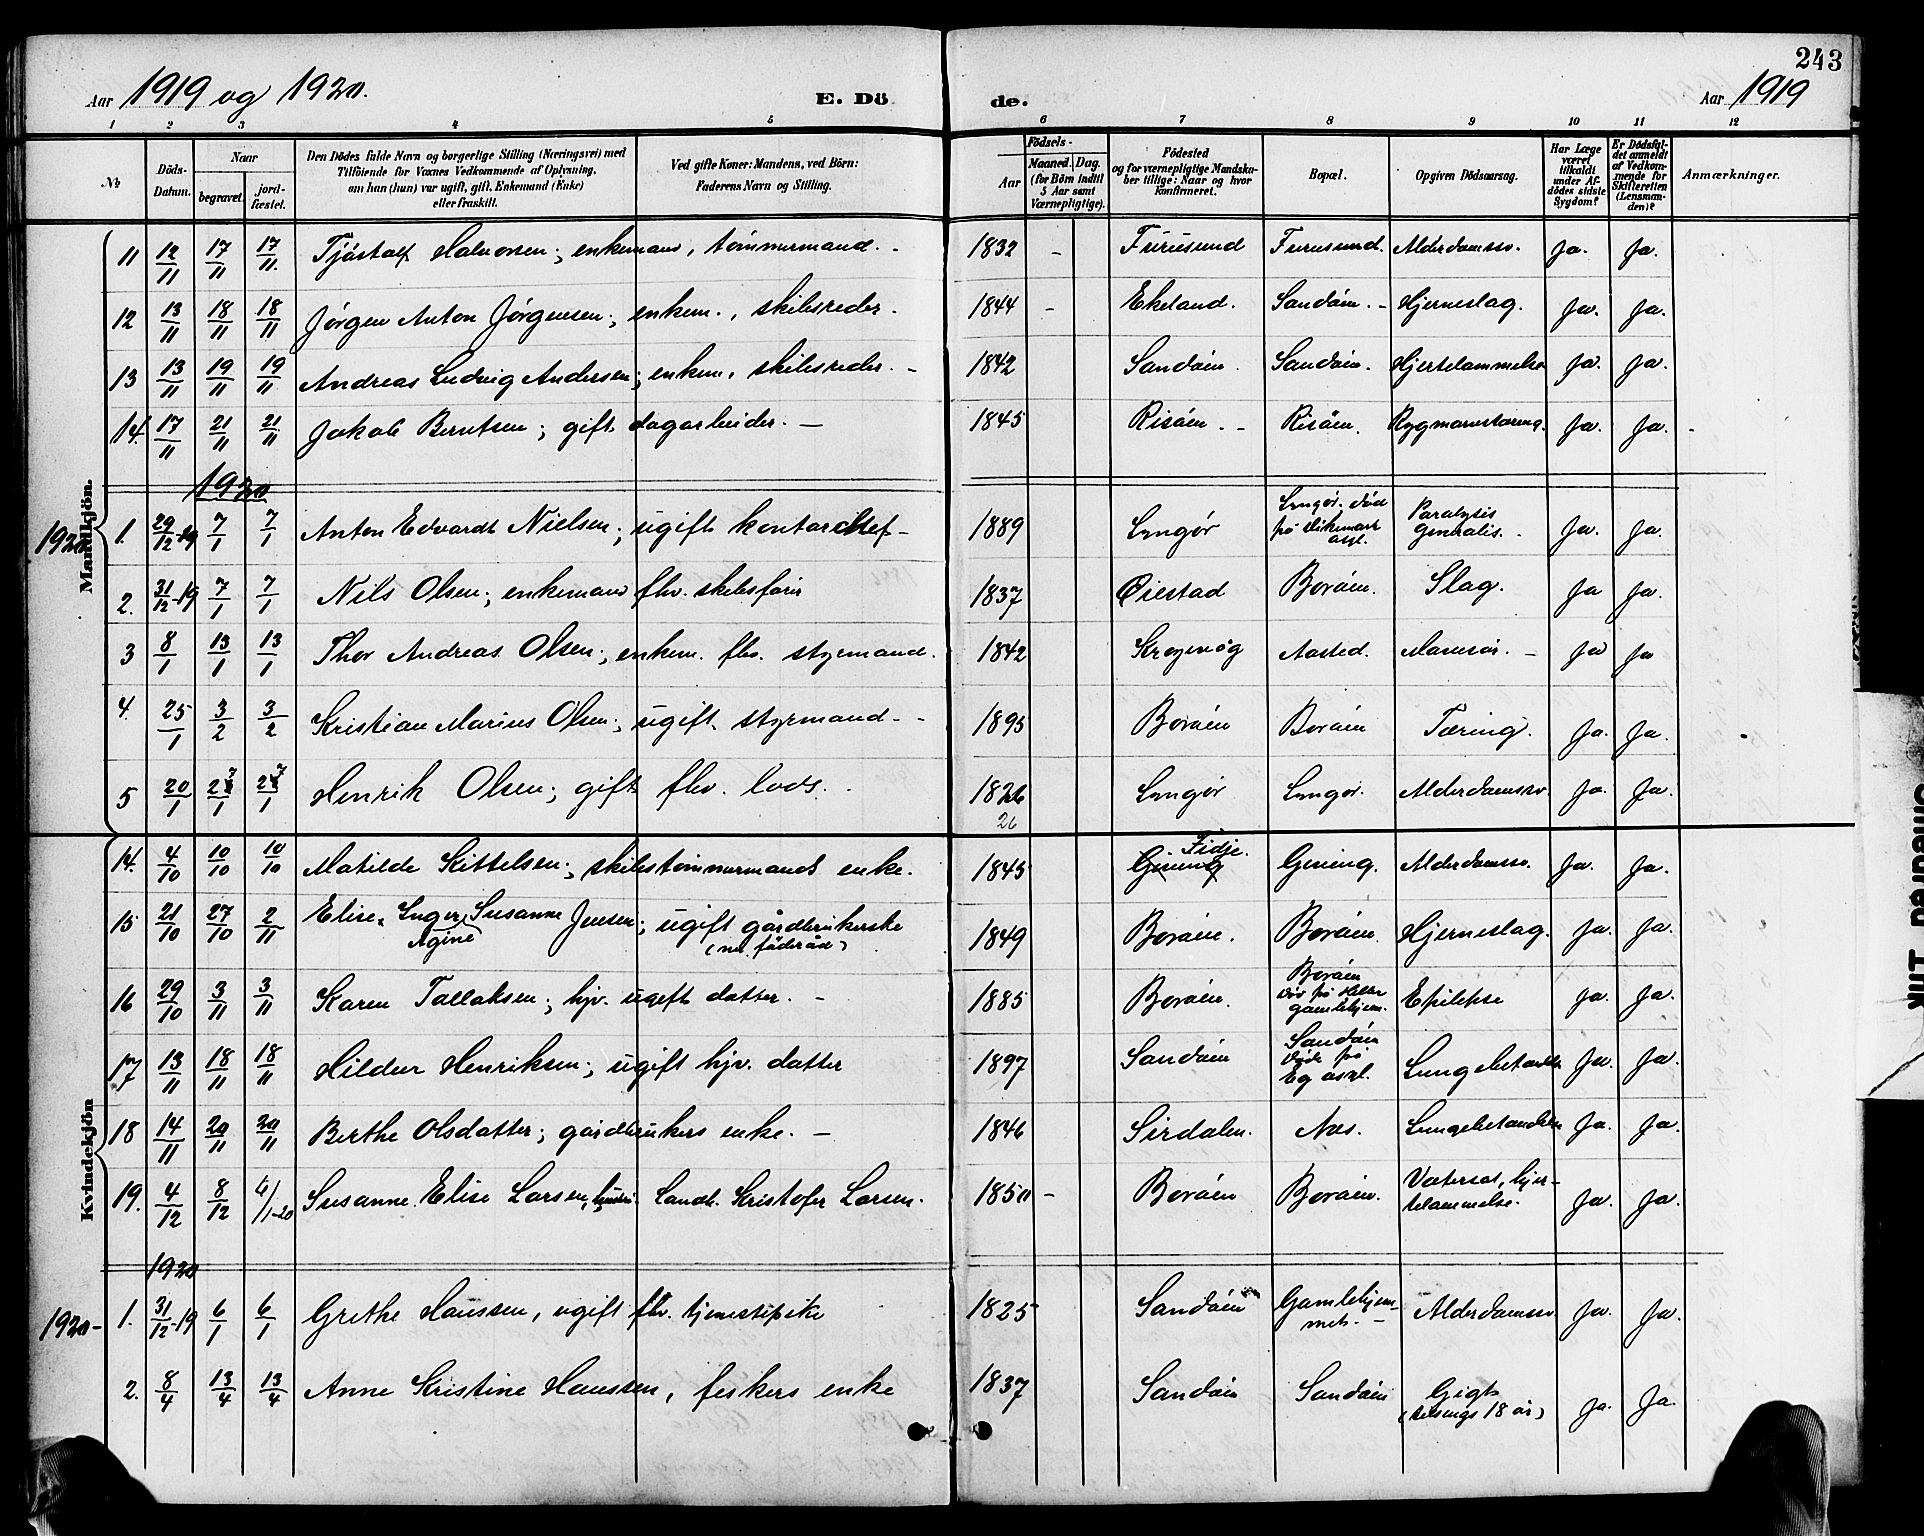 243
Aar 1919 og 1920. E. Dö de. Aar 1919
1 2 3 4 5 6 7 8 9 10 11 12
No
Döds-Datum.
Naar
begravet.
jord-fæstet.
Den Dödes fulde Navn og borgerlige Stilling (Næringsvei) med
Tilföiende for Voxnes Vedkommende af Oplysning,
om han (hun) var ugift, gift, Enkemand (Enke)
eller fraskilt.
Ved gifte Koner: Mandens, ved Börn:
Faderens Navn og Stilling.
Födsels-
Aar
Maaned. Dag.
(for Börn indtil
5 Aar samt
Værnepligtige).
Födested
og for værnepligtige Mandska-
ber tillige: Naar og hvor
konfirmeret.
Bopæl.
Opgiven Dödsaarsag.
Har Læge
været
tilkaldt
under Af-
dödes sidste
Sygdom?
Er Dödsfal-
det anmeldt
af Vedkom-
mende for
Skifteretten
(Lensman-
den)?
Anmærkninger.
Mandkjön.
11 12/11 17/11 17/11. Tjöstalf Halvorsen; enkemann, tømmermand. 1832 - Furusund Furusund. Alderdomssv. Ja. Ja.
12 13/11 18/11 18/11 Jørgen Anton Jørgensen; enkem., skibsreder. 1844 - Ekeland. Sandöen. - Hjerneslag. Ja. Ja.
13 13/11 19/11 19/11 Andreas Ludvig Andersen; enkem. skibsreder. - 1842 Sandöen. Sandöen. Hjertelammelse Ja. Ja.
14. 17/11 21/11 21/11 Jakob Berntsen; gift dagarbeider. - 1845 Risöen. - Risöen. Rygmarvstæring. Ja. Ja.
1920
1920 1. 29/12-19 7/1 7/1 Anton Edvardt Nielsen; ugift kontorchef - 1889 Lyngør Lyngør. död på Dikemark asyl. Paralysis Generalis. - Ja. Ja.
2. 31/12-19 7/1 7/1 Nils Olsen; enkemann fhv. skibsfører 1837 Øiestad Boröen. Slag. Ja Ja.
3 8/1 13/1 13/1 Thor Andreas Olsen; enkem. fhv. styrmand. 1842 Aasted. Ja Ja
4. 25/1 3/2 3/2 Kristian Marius Olsen; ugift styrmand - - 1895 Boröen Boröen Tæring. Ja. Ja.
5 20/1 27/1 27/1 Henrik Olsen; gift fhv. lods. 1826 26 Lyngør Lyngør. Alderdomssv. Ja. Ja.
Kvindekjön
14. 4/10 10/10 10/10 Matilde Kittelsen; skibstömmermands enke. 1845 Gjeving Fidje. Gjeving. Alderdomssv. Ja. Ja.
15 21/10 27/10 2/11 Elise Inger Agine Susanne Jensen; ugift gårdbrukerske (nu föderåd) 1849 Boröen. Boröen. Hjerneslag. Ja. Ja.
16 29/10 3/11 3/11 Karen Tallaksen; hjv. ugift datter. - 1885 Boröen. Boröen död på Holt gamlehjem. Epilepse Ja. Ja.
17 13/11 18/11 18/11 Hildur Henriksen; ugift hjv. datter 1897 Sandöen Sandöen död på Eg asyl. Lungebetændelse Ja. Ja.
18 14/11 20/11 20/11 Berthe Olsdatter; gårdbrukers enke. - 1846 Sirdalen. Næs. Lungebetændelse Ja. Ja.
19. 4/12 8/12 6/1-20 Susanne Elise Larsen, hustru. Landh. Kristofer Larsen. 1850 - Boröen Boröen. Vatersot, hjer-telammelse. Ja. Ja.
1920
1920- 1. 31/12-19 6/1 6/1 Grethe Hanssen, ugift fhv. tjenestepike 1825 Sandöen Gamlehjem-met. - Alderdomssv Ja. Ja.
2. 8/4 13/4 13/4 Anne Kristine Hanssen, fiskers enke 1837 Sandöen Sandöen Gigt (sengs 18 år) Ja. Ja.